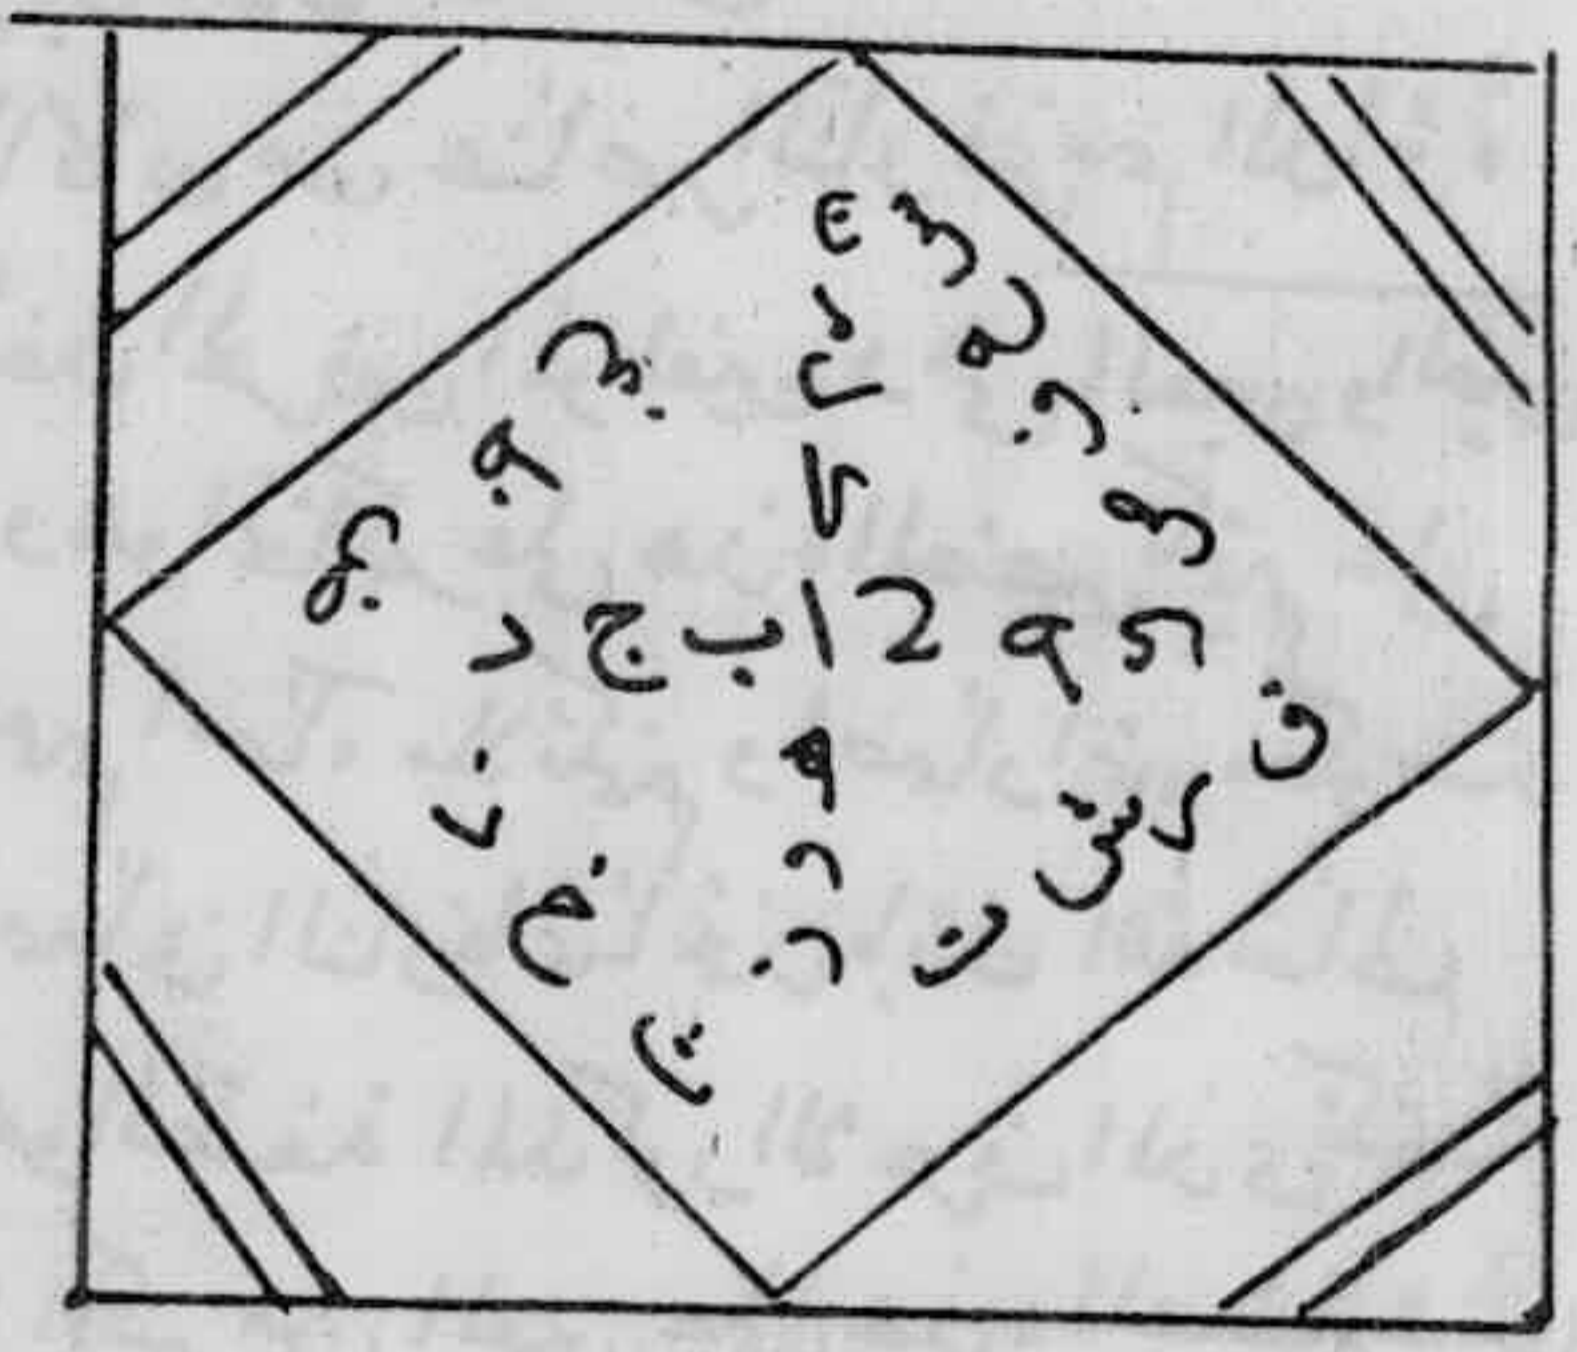 ا ب ج د
ه و ز
ح ط ي
ك ل م ن
س ع ف ص
ق ر ش ت
ث خ ذ
ض ظ غ